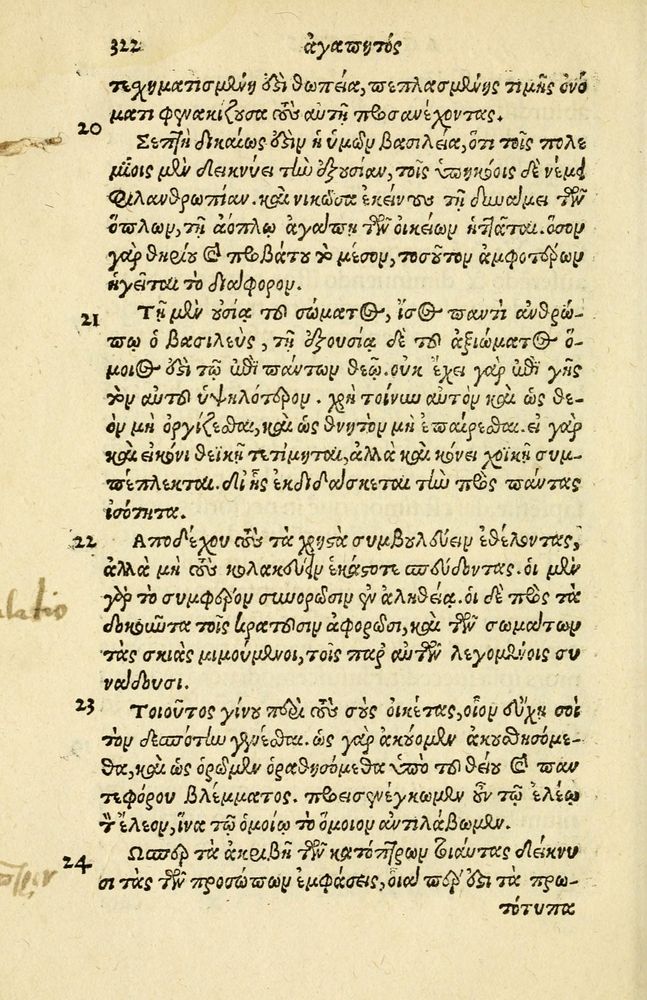 322 ἀγαπητὸς
τεχηματισμένη ὅδι θωπεία, πεπλασμένης τιμῆς ὀνό
ματι φενακίζουσα τοὺς αὐτῇ προσανέχοντας.
20
Σεπτὴ δικαίως ὅδιν ἡ ὑμῶν βασιλεία, ὅτι τοῖς πολε
μίοις μὲν δεικνύει τὴν ἐξουσίαν, τοῖς ὑπηκόοις δὲ νέμει
φιλανθρωπίαν. καὶ νικῶσα ἐκείνους τῇ δυνάμει τῶν
ὅπλων, τῇ ἀόπλῳ ἀγάπῃ τῶν οἰκείων ἡττᾶται. ὅσον
γὰρ θηρίου καὶ προβάτου τὸ μέσον, τοσοῦτον ἀμφοτέρων
ἡγεῖται τὸ διάφορον.
21
Τῇ μὲν οὐσίᾳ τοῦ σώματος, ἴσος παντὶ ἀνθρώ-
πῳ ὁ βασιλεὺς, τῇ ἐξουσίᾳ δὲ τοῦ ἀξιώματος ὅ-
μοιός ἐστι τῷ ἐπὶ πάντων θεῷ. οὐκ ἔχει γὰρ ἐπὶ γῆς
τὸν αὐτοῦ ὑψηλότερον. χρὴ τοίνυν αὐτὸν καὶ ὡς θε-
ὸν μὴ ὀργίζεσθαι, καὶ ὡς θνητὸν μὴ ἐπαίρεσθαι. εἰ γὰρ
καὶ εἰκόνι θεϊκῇ τετίμηται, ἀλλὰ καὶ κόνει χοϊκῇ συμ-
πέπλεκται. δι ἧς ἐκδιδάσκεται τὴν πρὸς πάντας
ἰσότητα.
22
Αποδέχου τοὺς τὰ χρηστὰ συμβουλεύειν ἐθέλοντας,
ἀλλὰ μὴ τοὺς κολακεύειν ἑκάστοτε σπεύδοντας. οἱ μὲν
γὰρ τὸ συμφέρον συνορῶσιν ἐν ἀληθείᾳ. οἱ δὲ πρὸς τὰ
δοκοῦντα τοῖς κρατοῦσιν ἀφορῶσι, καὶ τῶν σωμάτων
τὰς σκιὰς μιμούμενοι, τοῖς παρ αὐτῶν λεγομένοις συ
νᾴδουσι.
23
Τοιοῦτος γίνου περὶ τοὺς σοὺς οἰκέτας, οἷον εὔχῃ σοὶ
τὸν δεσπότην γενέσθαι. ὡς γὰρ ἀκούομεν ἀκουσθησόμε-
θα, καὶ ὡς ὁρῶμεν ὁραθησόμεθα ὑπὸ τοῦ θείου καὶ παν
τεφόρου βλέμματος. προεισενέγκωμεν οὖν τῷ ἐλέῳ
τὸν ἔλεον, ἵνα τῷ ὁμοίῳ τὸ ὅμοιον ἀντιλάβωμεν.
24
Ωσπερ τὰ ἀκριβῆ τῶν κατόπτρων τοιαύτας δείκνυ
σι τὰς τῶν προσώπων ἐμφάσεις, οἷάπερ ἐστὶ τὰ πρω-
τότυπα